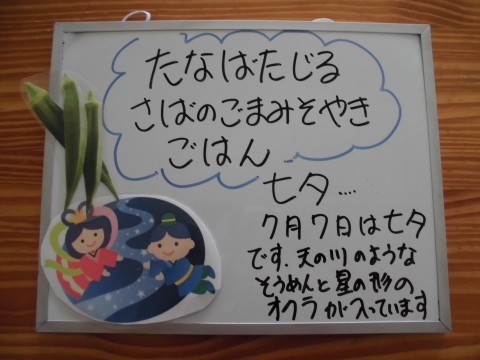 たなばたじる
さばのごまみそやき
ごはん
七夕....
7月7日は七夕
です.天の川のような
そうめんと星の形の
オクラが入っています